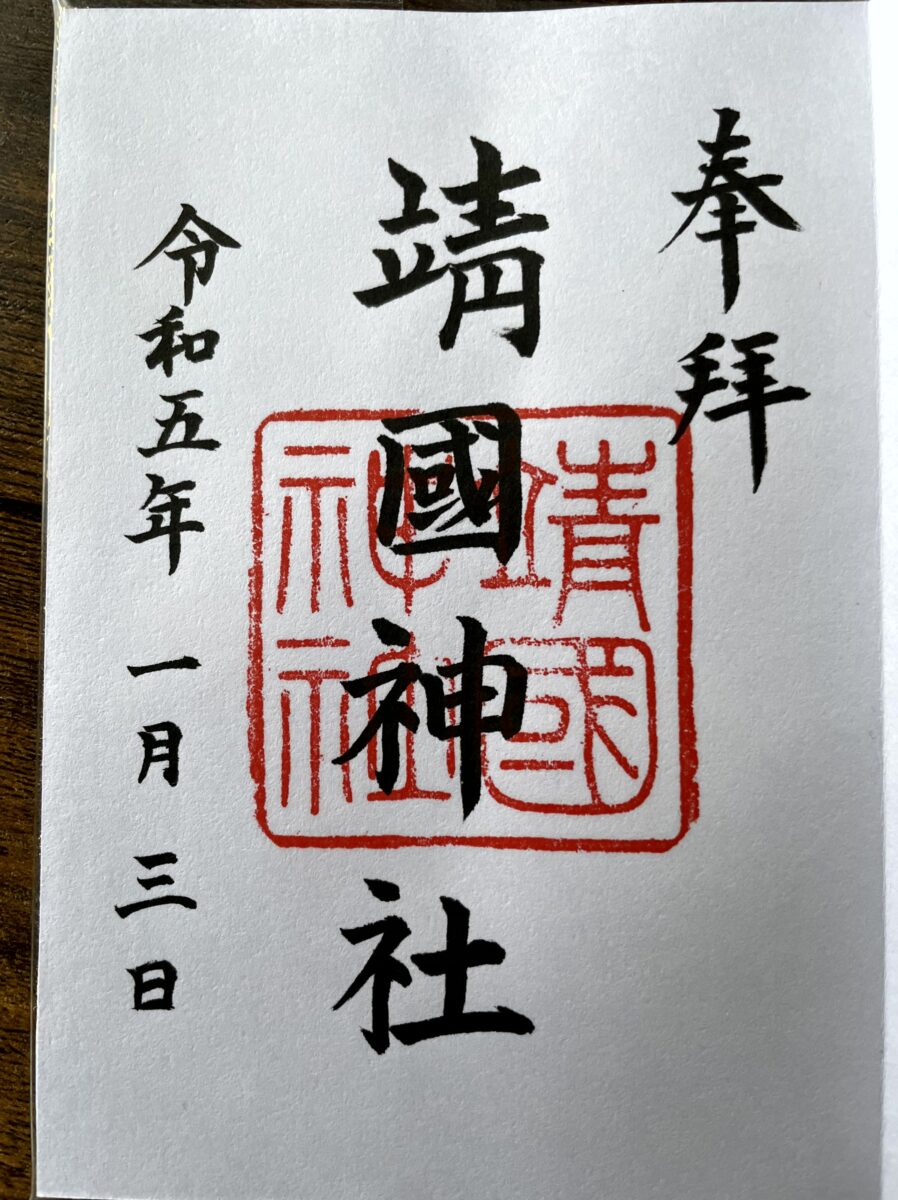 奉拜
靖國神社
靖國
神社
令和五年一月三日